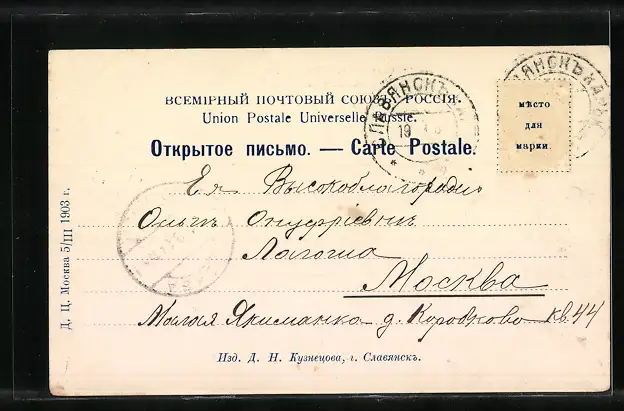 ВСЕМІРНЫЙ ПОЧТОВЫЙ СОЮЗЪ. РОССІЯ.
Union Postale Universelle. Russie.
Открытое письмо. — Carte Postale.
мѣсто
для
марки.
СЛАВЯНСКЪ
19
Ея Высокоблагородію
Ольгѣ Онуфріевнѣ
Москва
Малая Якиманка д. Коробково кв. 44
Изд. Д. Н. Кузнецова, г. Славянскъ.
Д. Ц. Москва 5/III 1903 г.